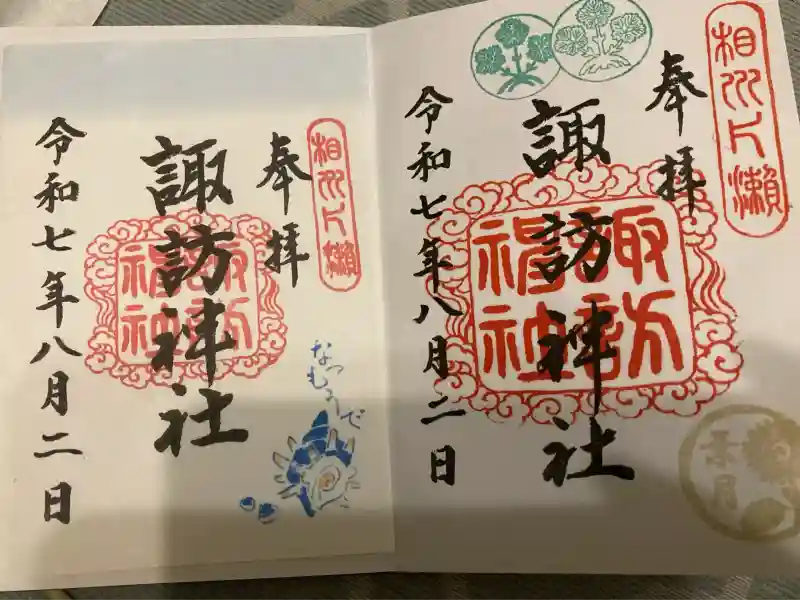 相州片瀬
奉拝
諏訪神社
諏訪
神社
令和七年八月二日
なつ
もうで
相州片瀬
奉拝
諏訪神社
諏訪
神社
令和七年八月二日
葉月